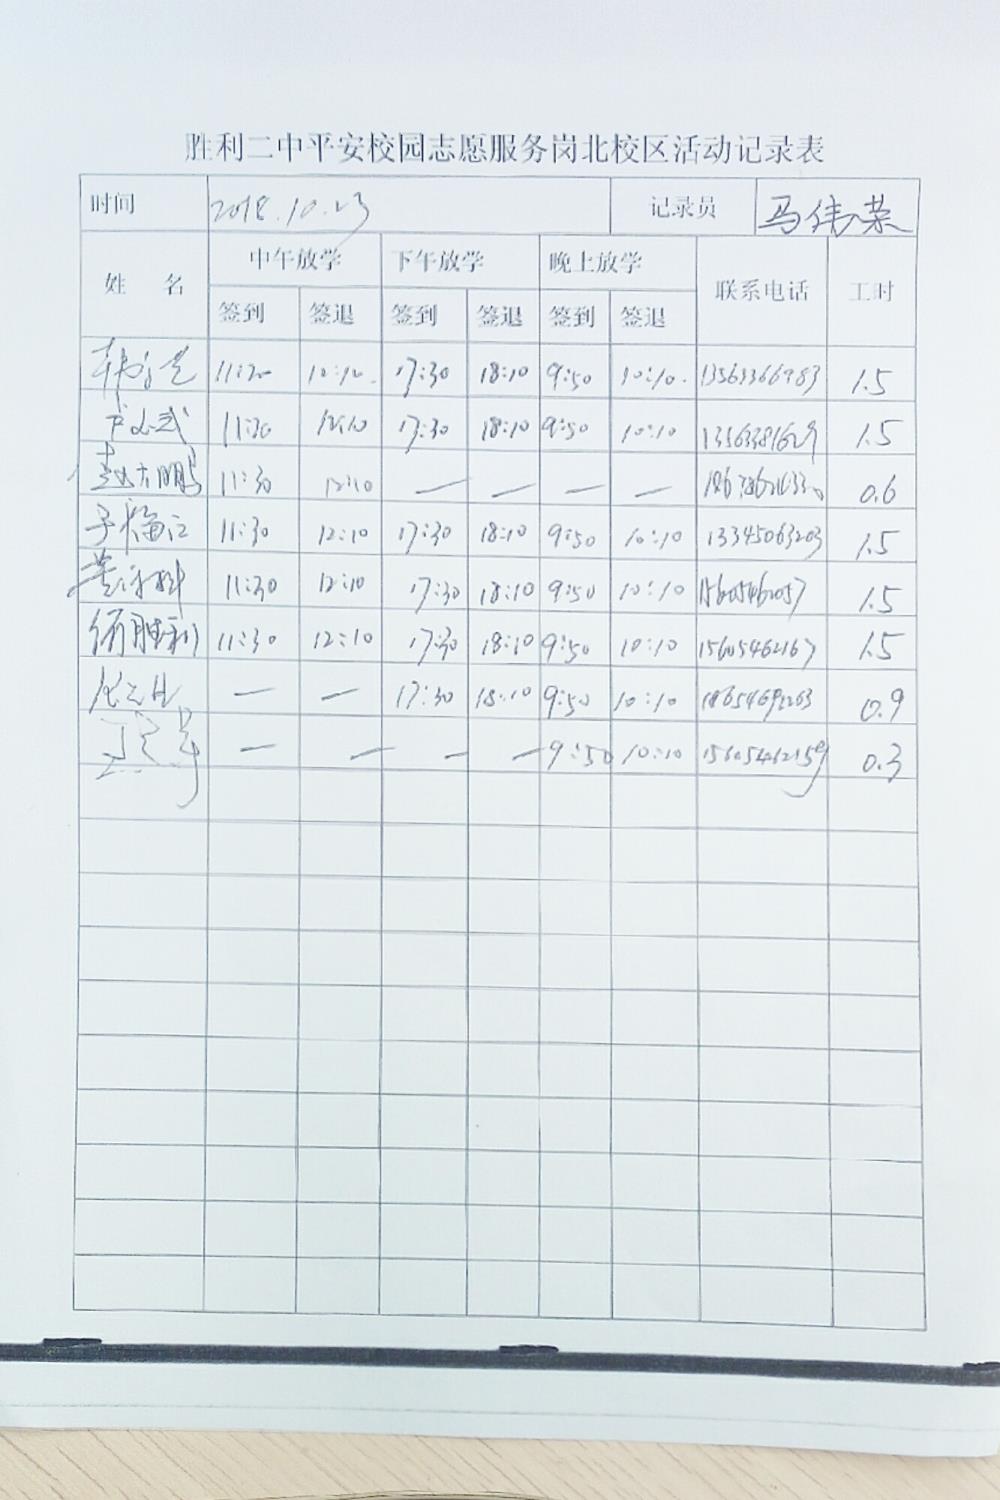 胜利二中平安校园志愿服务岗北校区活动记录表
时间 2018.10.23 记录员 马伟荣
姓 名 中午放学 下午放学 晚上放学 联系电话 工时
签到 签退 签到 签退 签到 签退
11:30 12:10 17:30 18:10 9:50 10:10 1.5
11:30 12:10 17:30 18:10 9:50 10:10 1.5
赵大鹏 11:30 12:10 — — — — 0.6
11:30 12:10 17:30 18:10 9:50 10:10 13345063203 1.5
11:30 12:10 17:30 18:10 9:50 10:10 15605462057 1.5
胜利 11:30 12:10 17:30 18:10 9:50 10:10 15605462167 1.5
— — 17:30 18:10 9:50 10:10 0.9
— — — — 9:50 10:10 15605462159 0.3